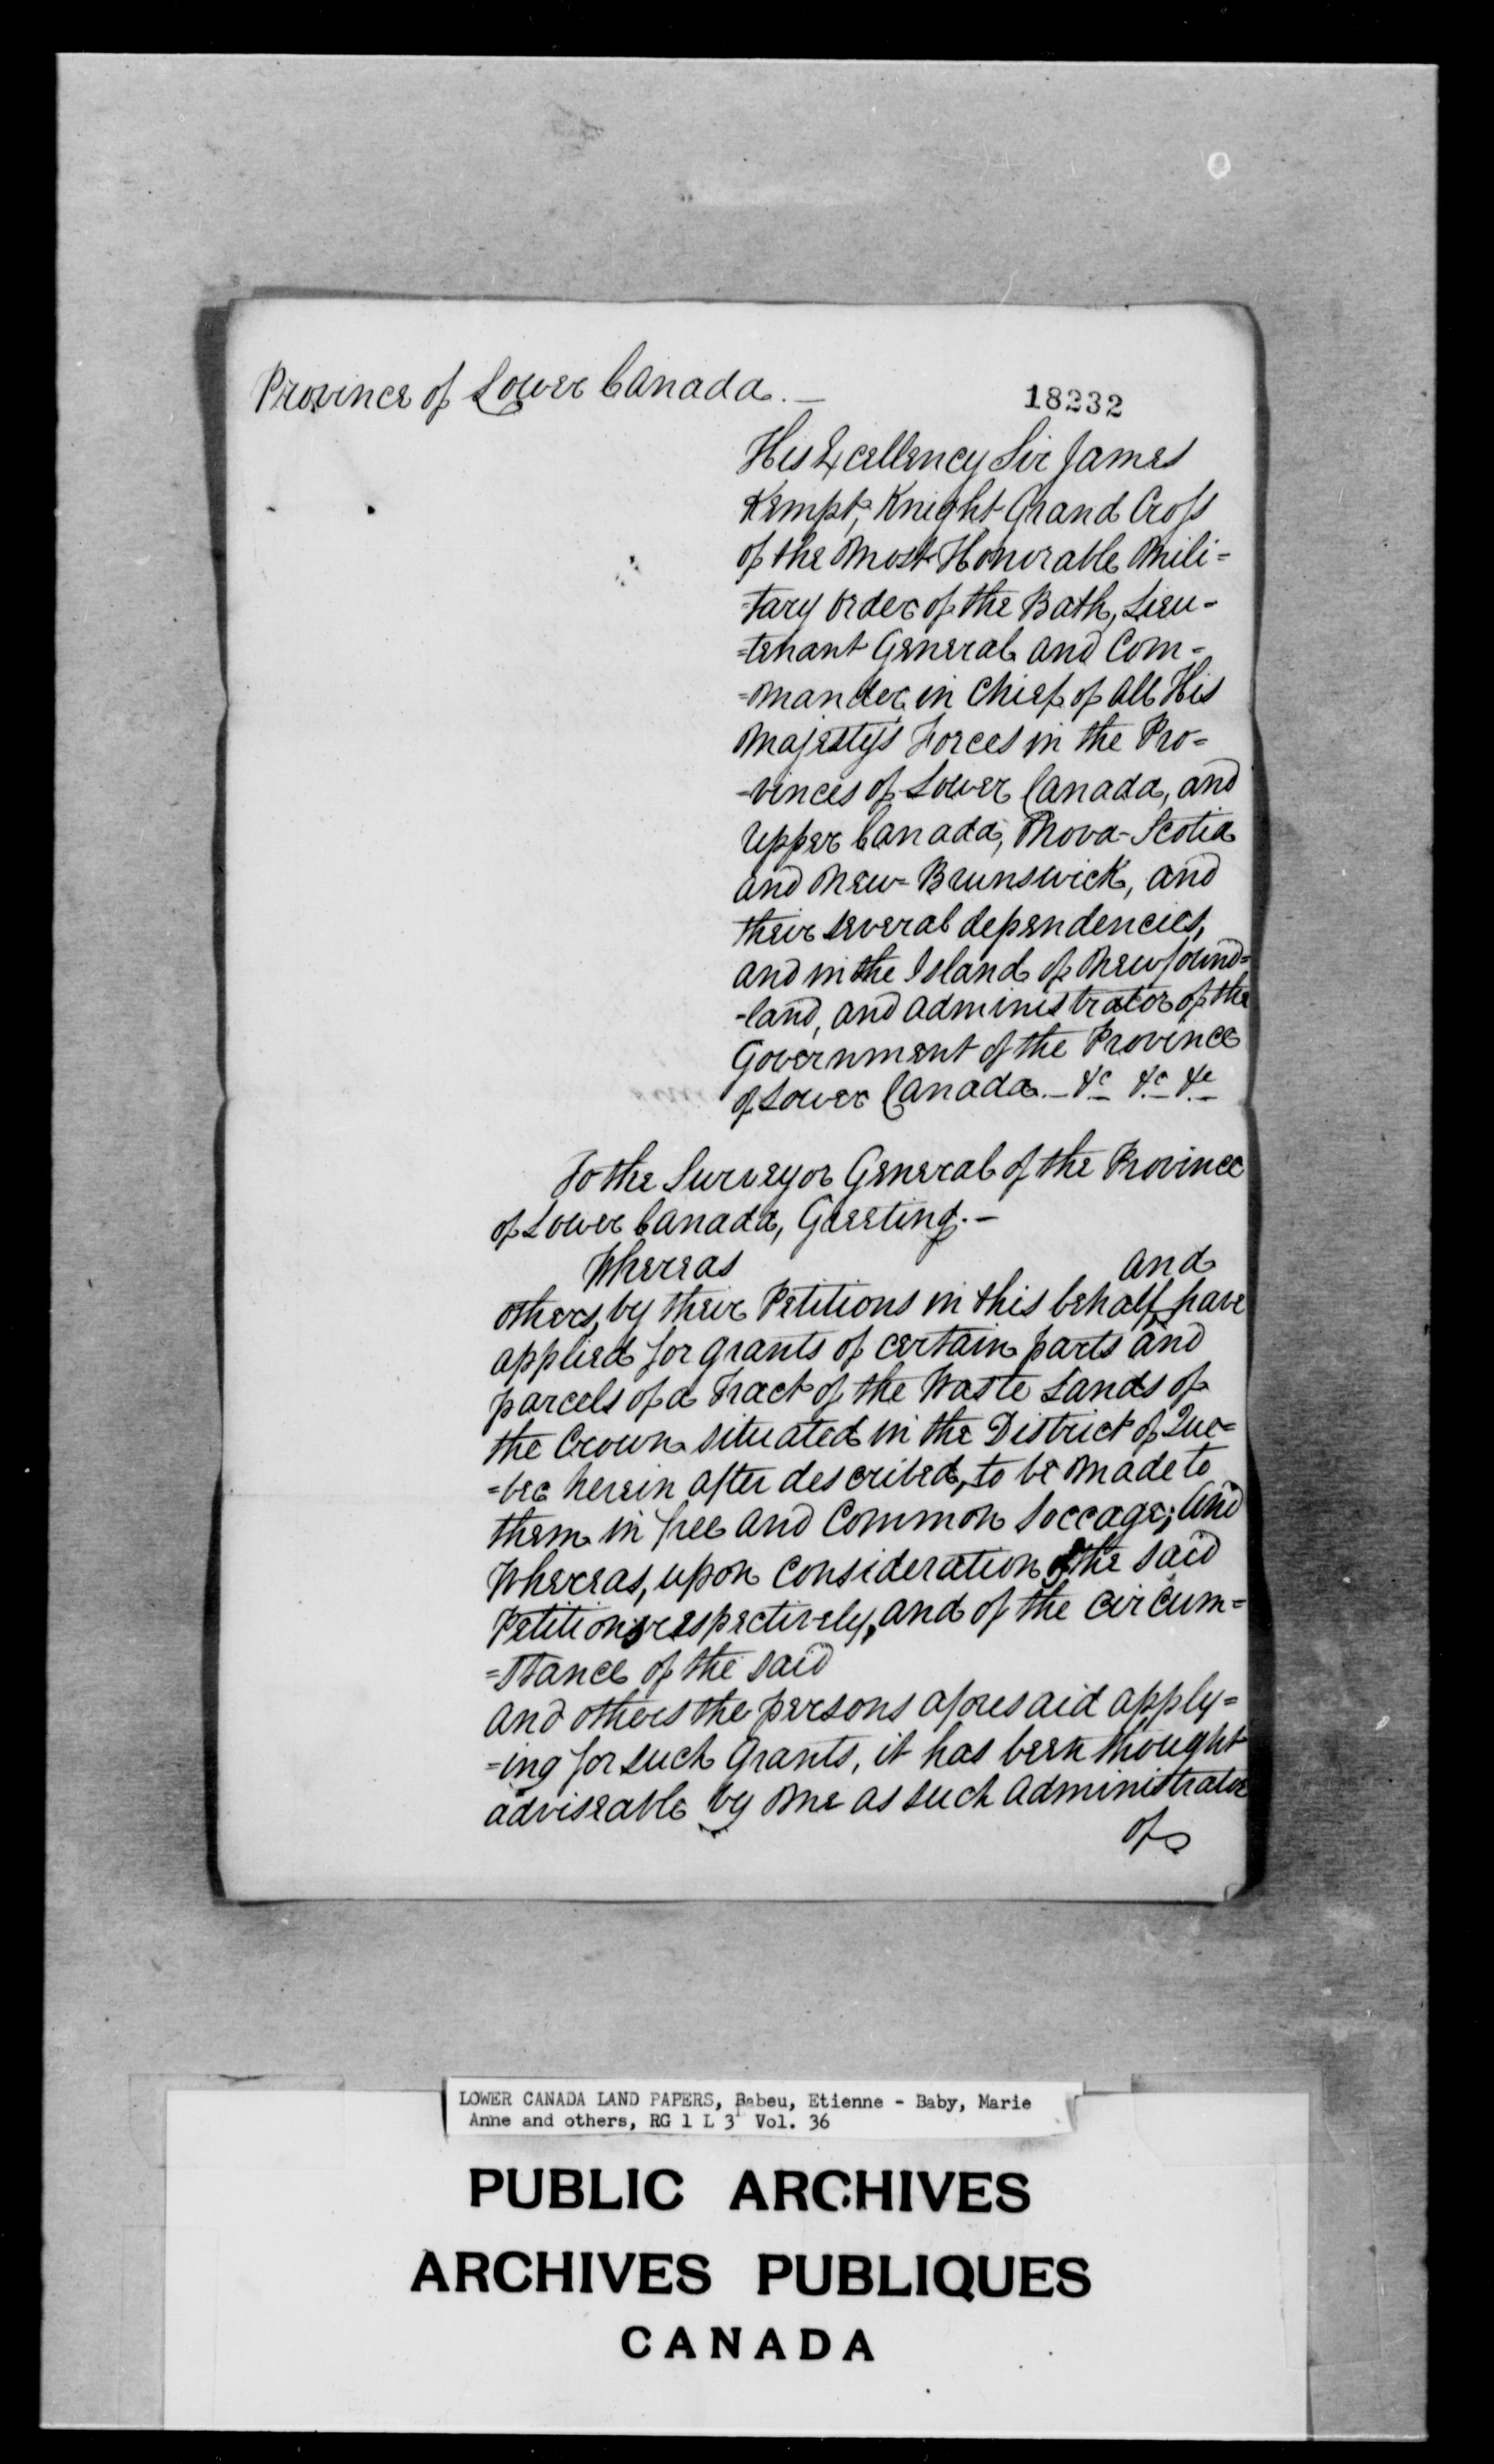 Province of Lower Canada. —
18232
His Excellency Sir James
Kempt, Knight Grand Cross
of the Most Honorable Mili=
=tary Order of the Bath, Lieu=
=tenant General and Com=
=mander in Chief of all His
Majesty's Forces in the Pro=
=vinces of Lower Canada, and
Upper Canada, Nova-Scotia
and New=Brunswick, and
their several dependencies,
and in the Island of Newfound=
=land, and administrator of the
Government of the Province
of Lower Canada.— &c &c &c
To the Surveyor General of the Province
of Lower Canada, Greeting.—
Whereas and
others, by their Petitions in this behalf, have
applied for grants of certain parts and
parcels of a Tract of the Waste Lands of
the Crown situated in the District of Que=
=bec herein after described, to be made to
them in free and Common Soccage; And
Whereas, upon Consideration of the said
Petitions respectively, and of the circum=
=stance of the said
and others the persons aforesaid apply=
=ing for such Grants, it has been thought
adviseable by me as such Administrator
of
LOWER CANADA LAND PAPERS, Babeu, Etienne - Baby, Marie
Anne and others, RG 1 L 3 Vol. 36
PUBLIC ARCHIVES
ARCHIVES PUBLIQUES
CANADA